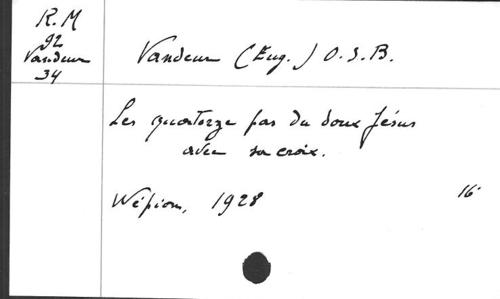 R. M
92
Vandeur
34
Vandeur (Eug.) O.S.B.
Les quatorze pas du doux Jésus
avec sa croix.
Wépion, 1928
16°